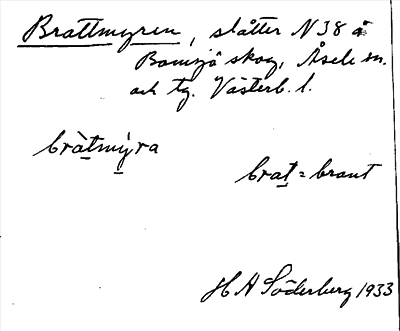 Brattmyren, slåtter N 38 å
Bomsjö skog, Åsele sn.
och tg. Västerb. l.
bràtmýra
brat = brant
H A Söderberg 1933